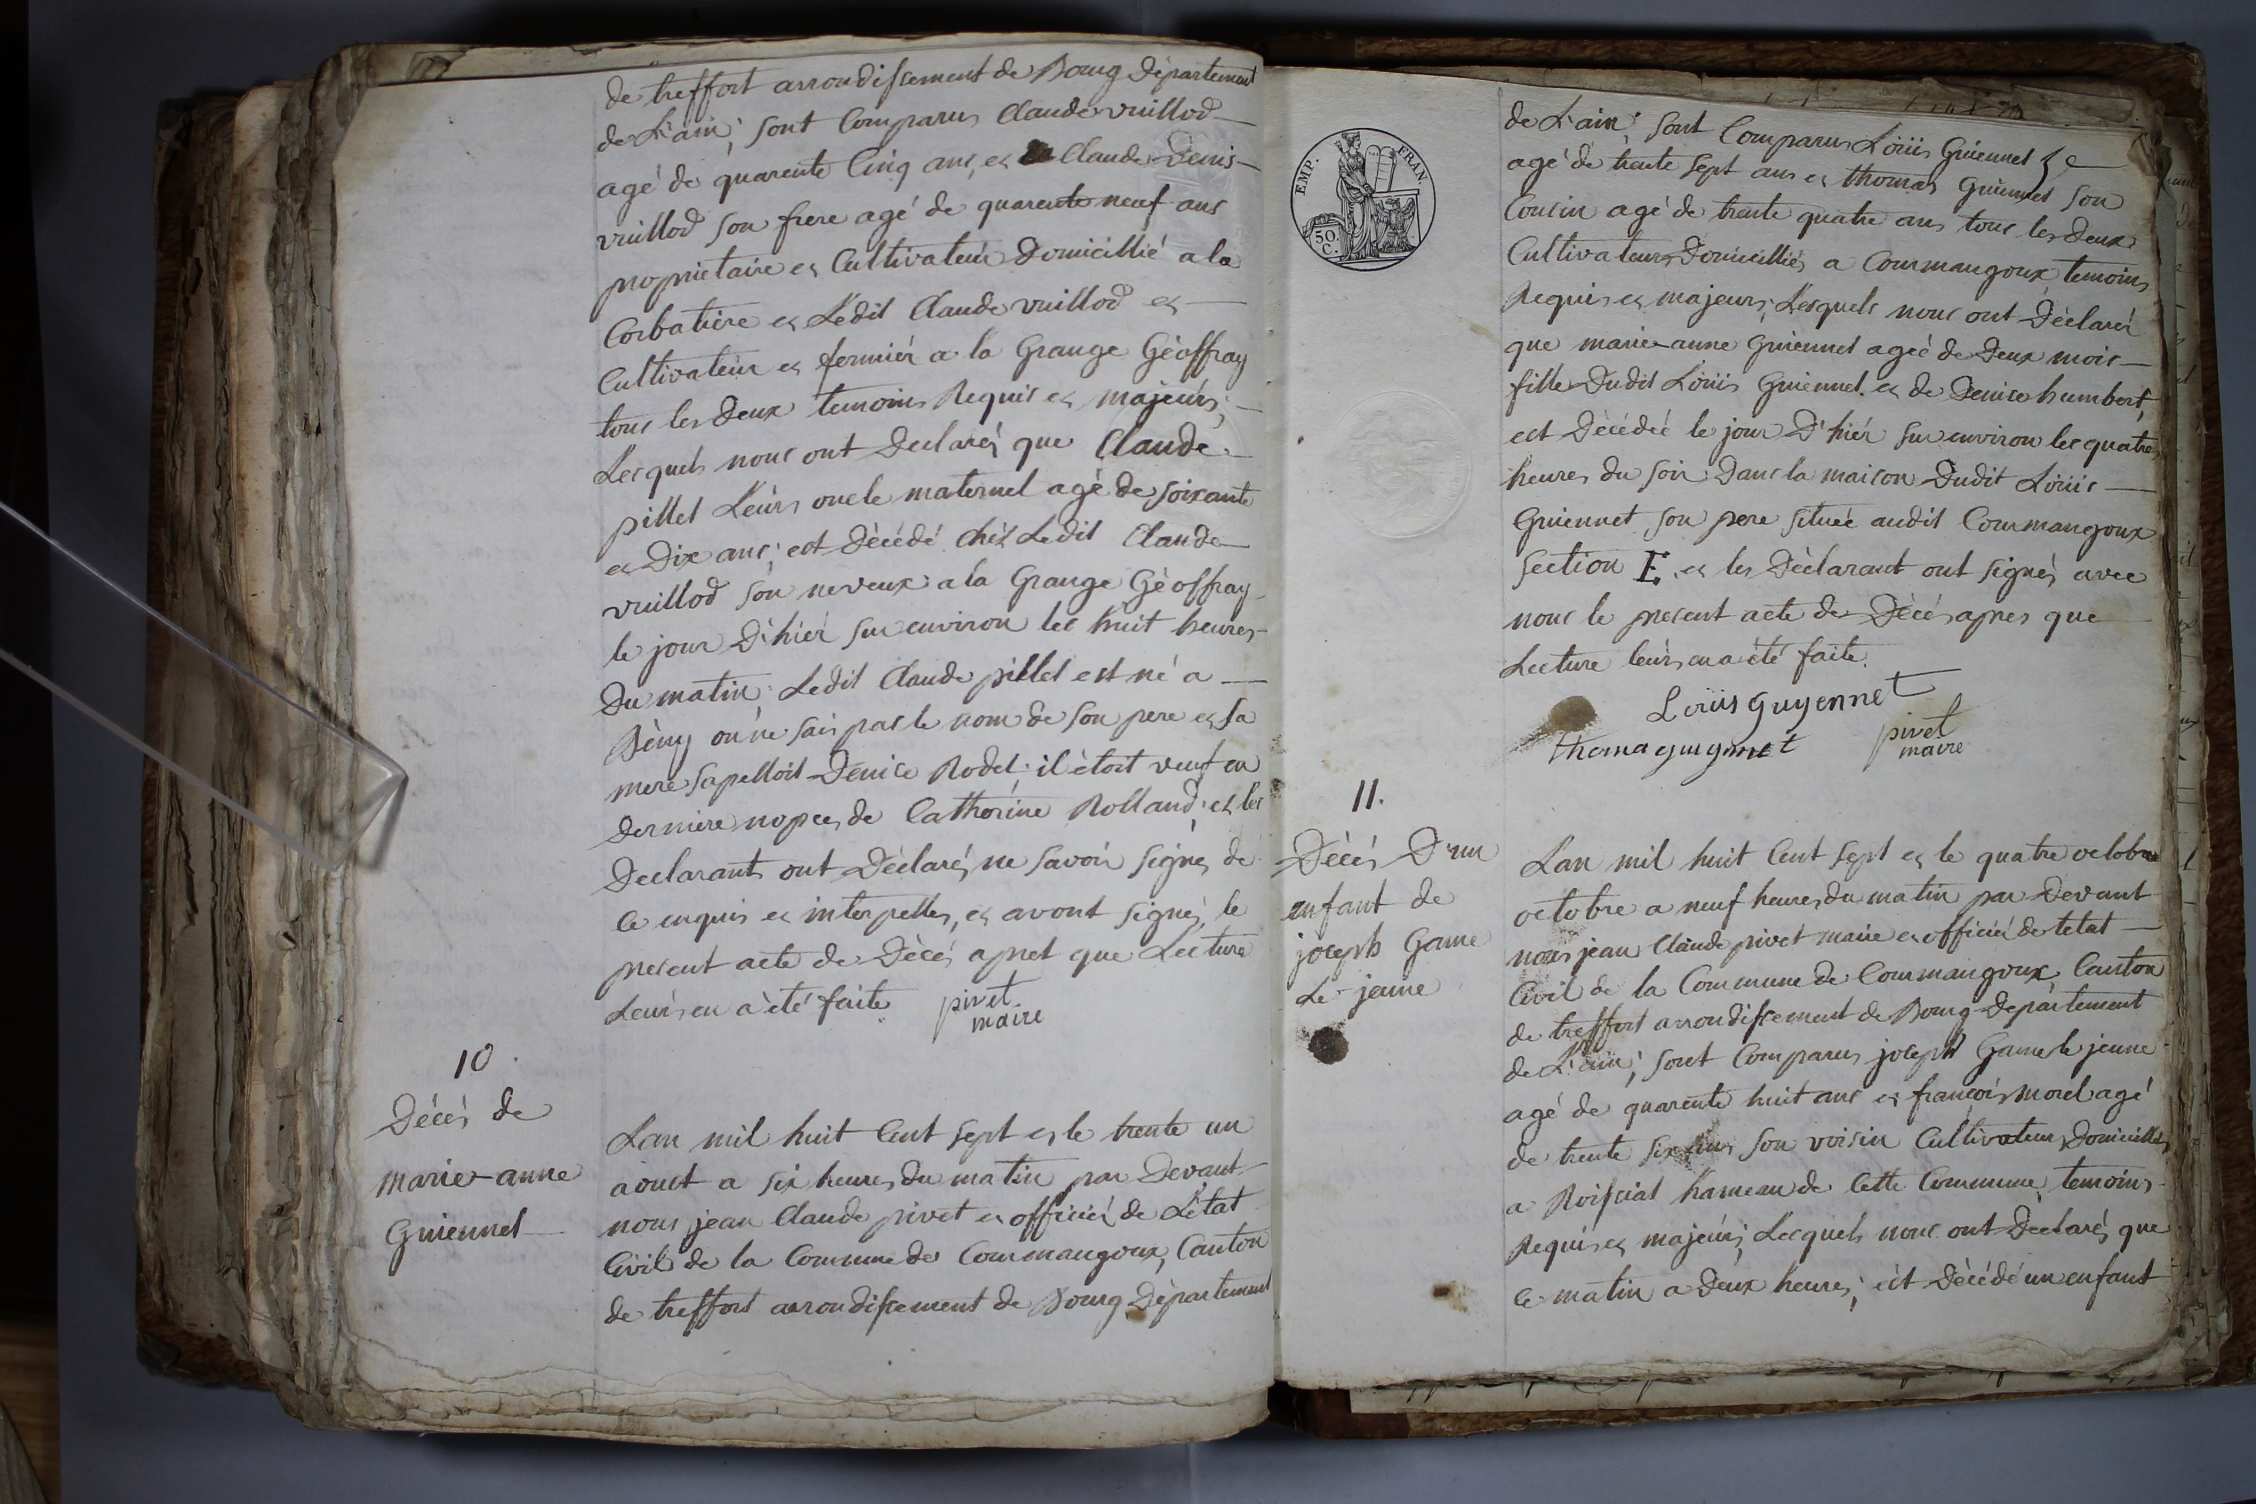 de treffort arrondissement de Bourg Département
de L'ain; sont Comparus Claude vuillod
agé de quarente Cinq ans, et Claude Denis
vuillod son frere agé de quarente neuf ans
proprietaire et Cultivateur Domicillié a la
Corbatiere et Ledit Claude vuillod et
Cultivateur et fermiér a la Grange Géoffray
tous les deux temoins Requis et majeurs;
Lesquels nous ont Declarés que Claude
pillet Leurs oncle maternel agé de soixante
et Dix ans; est Décédé chéz Ledit Claude
vuillod son neveux a la Grange Géoffray
le jour D'hiér sur environ les huit heures
Du matin; Ledit Claude pillet est né a
Bény on ne sais pas le nom de son pere et sa
mere sapelloit Denise Rodet. il étoit veuf en
derniere nopces de Cathérine Rolland, et les
Declarants ont Déclarés ne savoir signés de
ce enquis et interpelles, et avont signés le
present acte de Décés apret que Lecture
Leurs en a été faite. pivet
maire
10.
Décés de
marie-anne
Guiennet
Lan mil huit Cent sept et le trente un
aoust a six heures du matin par Devant
nous jean Claude pivet et officiér de L'état
Civil de la Commune de Courmangoux, Canton
de treffort arrondissement de Bourg Département
EMP. FRAN.
50.
C.
de L'ain; sont Comparus Loüis Guiennet
agé de trente sept ans et thomas Guiennet son
Cousin agé de trente quatre ans tous les deux
Cultivateurs Domicilliés a Courmangoux, temoins
Requis et majeurs; Lesquels nous ont Déclarés
que marie-anne Guiennet ageé de Deux mois
fille Dudit Loüis Guiennet et de Denise humbert,
est Décédeé le jour D'hiér sur environ les quatre
heures du soir Dans la maison Dudit Loüis
Guiennet son pere située audit Courmangoux
Section E. et les Déclarant ont signés avec
nous le present acte de Décés apres que
Lecture leurs en a été faite.
Loüis Guyennet
thoma guynnet pivet
maire
11.
Décés D'un
enfant de
joseph Game
Le jeune
Lan mil huit Cent sept et le quatre octobre
octobre a neuf heures du matin par Devant
nous jean Claude pivet maire et officiér de letat
Civil de la Commune de Courmangoux Canton
de treffort arrondissement de Bourg Département
de L'ain; sont Comparus joseph Game le jeune
agé de quarente huit ans et françois morel agé
de trente six ans son voisin Cultivateurs Domicilliés
a Roissiat hameau de Cette Commune, temoins
Requis et majeurs; Lesquels nous ont Declarés que
ce matin a Deux heures; est Décédé un enfant